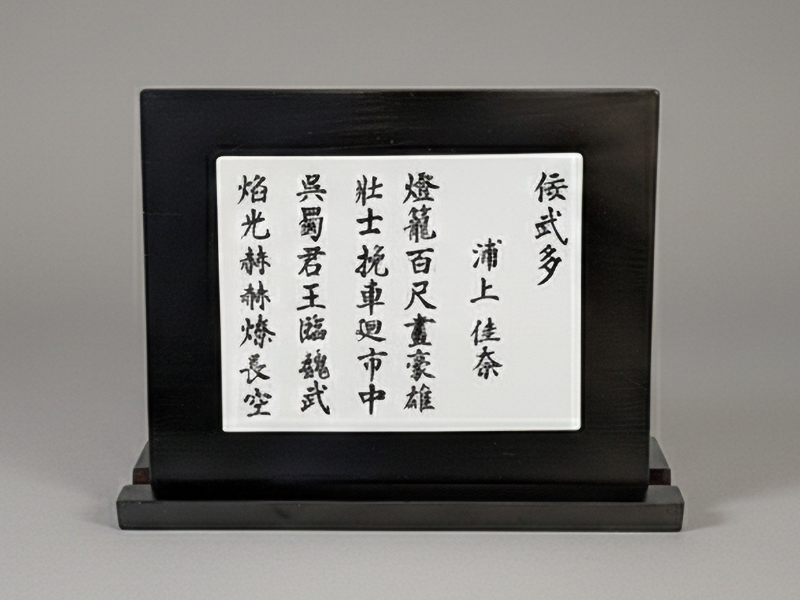 佞武多
浦上佳奈
燈籠百尺畫豪雄
壯士挽車廻市中
呉蜀君王臨魏武
焰光赫赫燎長空